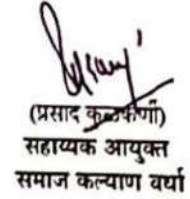 (प्रसाद कुळकर्णी)
सहाय्यक आयुक्त
समाज कल्याण वर्धा